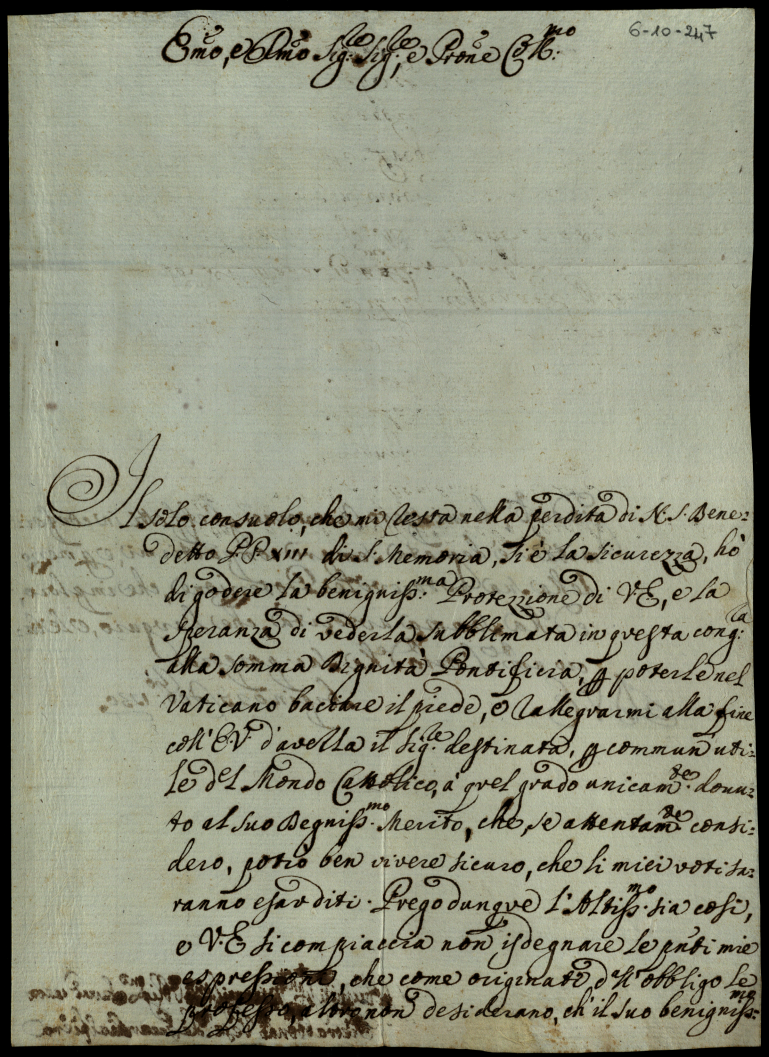 6-10-247
Emo, e Rmo Sig.re Sig.re, e Prone Col.mo
Il solo consuolo, che mi resta nella perdita di N. S. Bene-
detto PP XIII di S. Memoria, si è la sicurezza, hò
di godere la benigniss.ma Protezzione di V.E., e la
speranza di vederla subblimata in questa cong.la
alla somma Dignità Pontificia, p poterle nel
Vaticano bacciare il piede, e rallegrarmi alla fine
coll'E.V. d'avella il Sig.re destinata, p commun uti-
le del Mondo Cattolico, à quel grado unicam.te dovu-
to al suo Degniss.mo Merito, che, se attentam.te consi-
dero, potrò ben vivere sicuro, che li miei voti sa-
ranno esauditi. Prego dunque l'Altiss.mo sia così,
e V.E. si compiaccia non isdegnare le pnti mie
espressioni, che come originate d'll'obbligo le
professo, altro non desiderano, ch'il suo benigniss.mo